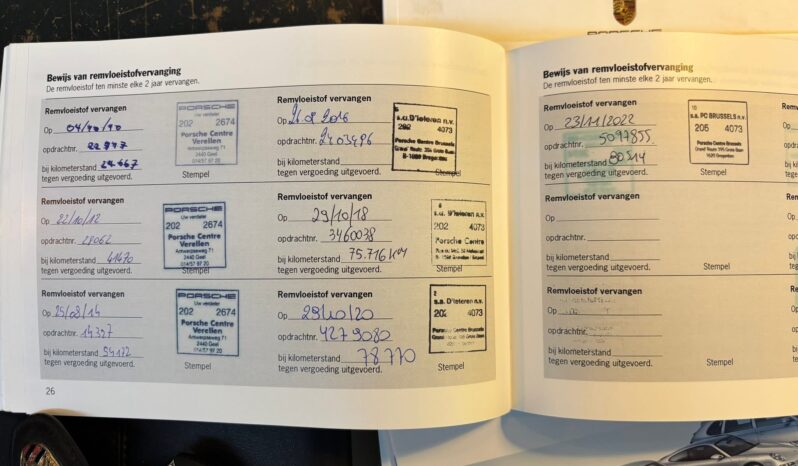 PORSCHE
Bewijs van remvloeistofvervanging
De remvloeistof ten minste elke 2 jaar vervangen.
Remvloeistof vervangen
Op 04/10/10
opdrachtnr. 22947
bij kilometerstand 24.467
tegen vergoeding uitgevoerd.
PORSCHE
Uw verdeler
202 2674
Porsche Centre
Verellen
Antwerpseweg 71
2440 Geel
014/57 97 20
Stempel
Remvloeistof vervangen
Op 26 08 2016
opdrachtnr. 2403496
bij kilometerstand
tegen vergoeding uitgevoerd.
s.a. D'Ieteren n.v.
202 4073
Porsche Centre Brussels
Grand Route 395 Grote Baan
B-1620 Drogenbos
Stempel
Remvloeistof vervangen
Op 22/10/12
opdrachtnr. 28062
bij kilometerstand 41470
tegen vergoeding uitgevoerd.
PORSCHE
Uw verdeler
202 2674
Porsche Centre
Verellen
Antwerpseweg 71
2440 Geel
014/57 97 20
Stempel
Remvloeistof vervangen
Op 29/10/18
opdrachtnr. 3460038
bij kilometerstand 75.716 km
tegen vergoeding uitgevoerd.
s.a. D'Ieteren n.v.
202 4073
Porsche Centre
Stempel
Remvloeistof vervangen
Op 25/08/14
opdrachtnr. 14327
bij kilometerstand 54172
tegen vergoeding uitgevoerd.
PORSCHE
Uw verdeler
202 2674
Porsche Centre
Verellen
Antwerpseweg 71
2440 Geel
014/57 97 20
Stempel
Remvloeistof vervangen
Op 29/10/20
opdrachtnr. 4279080
bij kilometerstand 78770
tegen vergoeding uitgevoerd.
s.a. D'Ieteren n.v.
202 4073
Porsche Centre Brussels
Grand Route 395 Grote Baan
Stempel
26
Bewijs van remvloeistofvervanging
De remvloeistof ten minste elke 2 jaar vervangen.
Remvloeistof vervangen
Op 23/11/2022
opdrachtnr. 5097855
bij kilometerstand 80514
tegen vergoeding uitgevoerd.
10
s.a. PC BRUSSELS n.v.
205 4073
Porsche Centre Brussels
Grand Route 395 Grote Baan
1620 Drogenbos
Stempel
Remvloeistof vervangen
Op
opdrachtnr.
bij kilometerstand
tegen vergoeding uitgevoerd.
Stempel
Remvloeistof vervangen
Op
opdrachtnr.
bij kilometerstand
tegen vergoeding uitgevoerd.
Stempel